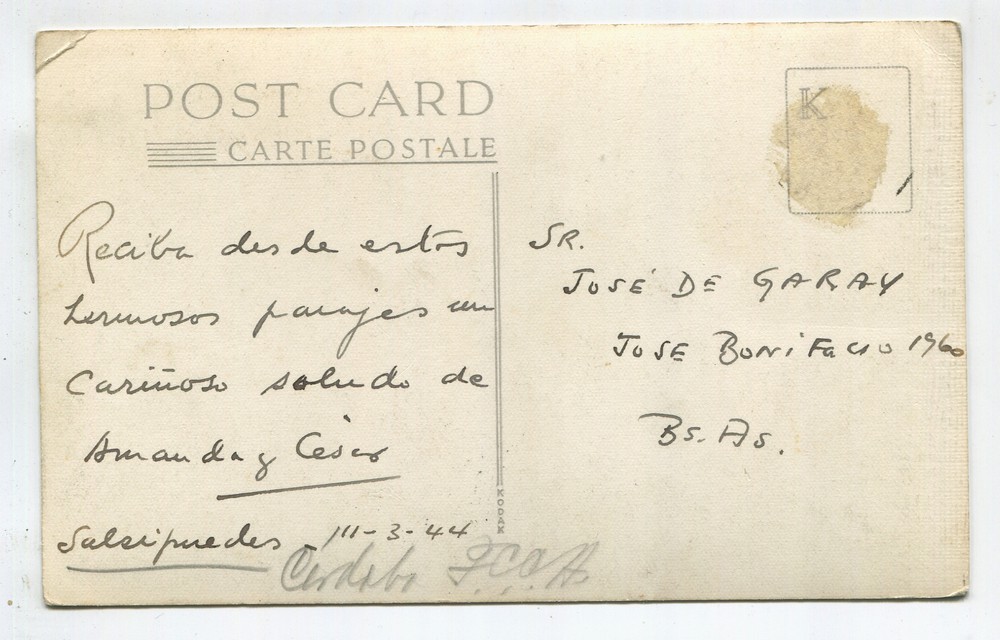 POST CARD
CARTE POSTALE
K
Reciba desde estos
hermosos parajes un
Cariñoso saludo de
Amanda y César
Salsipuedes - III-3-44
Córdoba F.C.C.A.
KODAK
SR.
JOSÉ DE GARAY
JOSE BONIFACIO 1960
Bs. As.